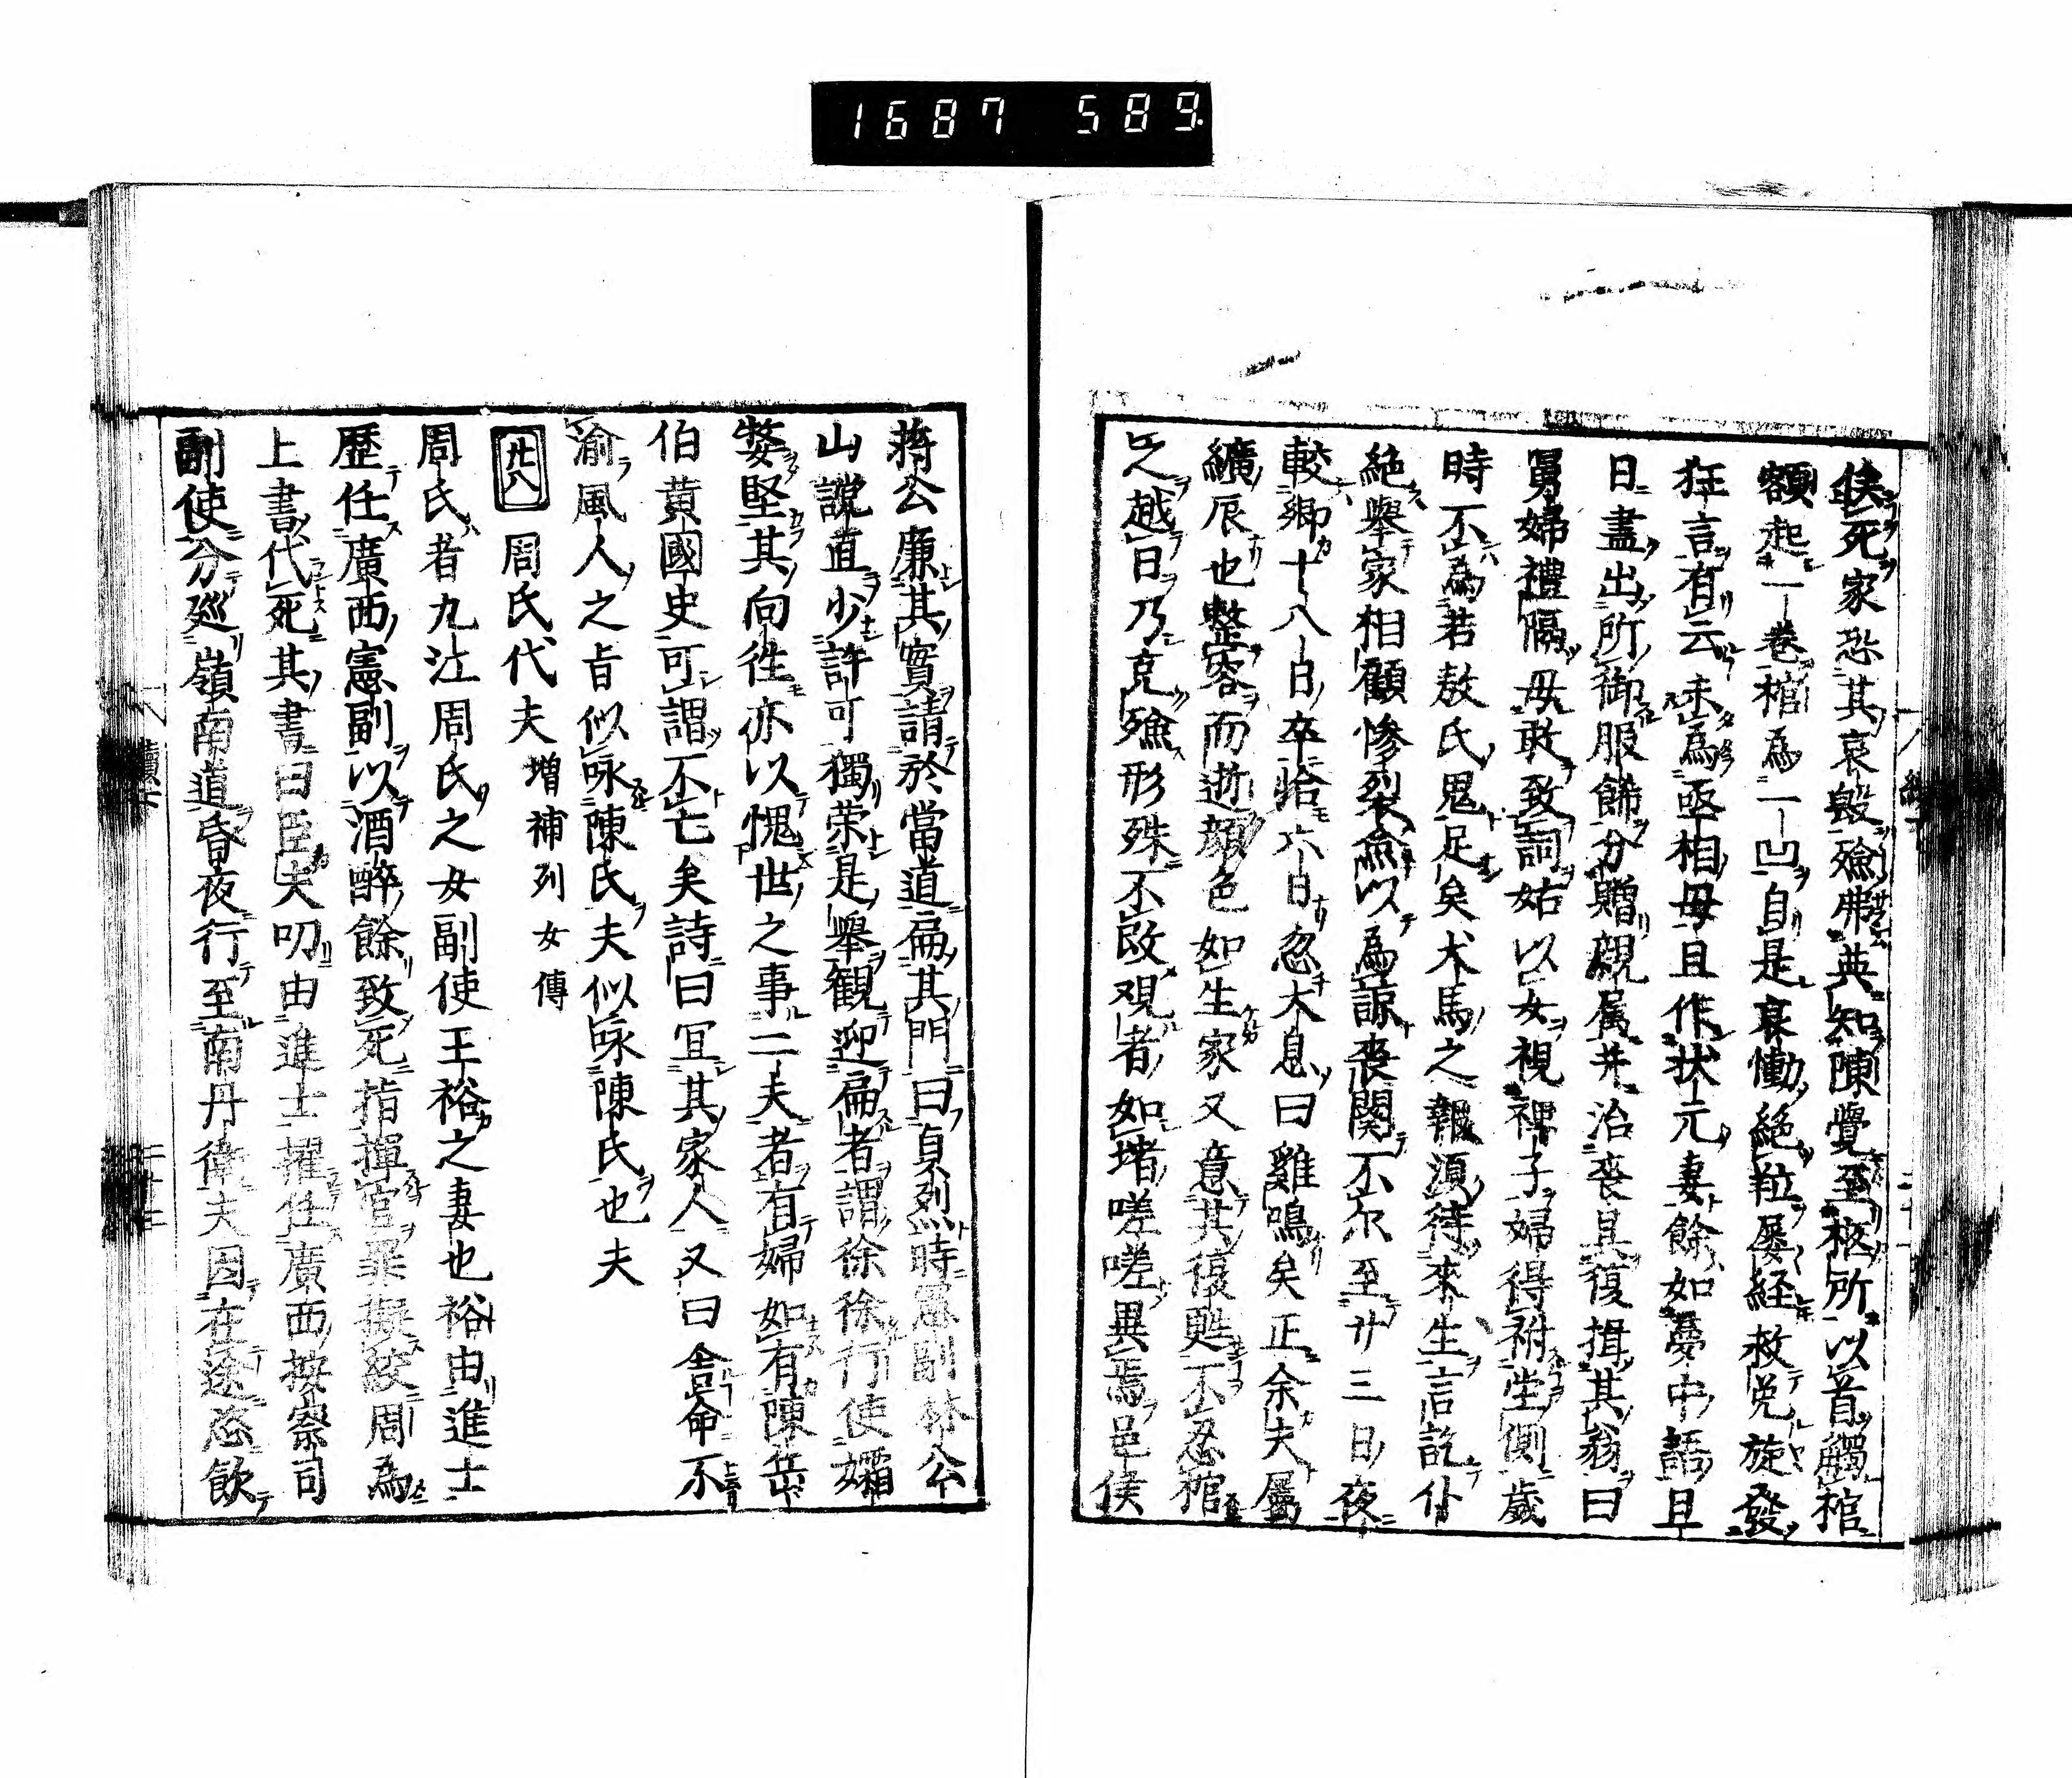 1687 589
俟死家恐其哀毀殮弗英知陳覺至柩所以首觸棺
額起一卷棺為一凹自是哀慟絶粒屡経救免旋發
狂言有云未為亟相母且作状元妻餘如憂中語且
日盡出所御服餙分贈親属并治丧具復揖其翁曰
舅婦禮隔毋敢致詞姑以女視裨子婦得祔坐側歲
時不為若敖氏鬼足矣犬馬之報須待來生言訖仆
絶舉家相顧慘裂僉以為諒丧関不尓至廿三日夜
較卿十八日卒恰六日忽大息曰雞鳴矣正余夫屬
纊辰也整容而逝顔色如生家又意其復甦不忍棺
之越日乃克殮形殊不改观者如堵嗟嗟異焉邑侯
蒋公廉其實請於當道扁其門曰貞烈時憲副林公
山讜直少許可獨荣是舉觀迎扁者謂徐徐行使孀
嫠堅其向徃亦以愧世之事二夫者有婦如有陳岳
伯黄國史可謂不亡矣詩曰冝其家人又曰舎命不
渝風人之旨似咏陳氏夫似咏陳氏也夫
廿八 周氏代夫 増補列女傳
周氏者九江周氏之女副使王裕之妻也裕由進士
歴任廣西憲副以酒醉餘致死指揮官罪擬絞周為
上書代死其書曰臣夫叨由進士擢任廣西按察司
副使分廵嶺南道昏夜行至南丹衛夫因在途恣飲